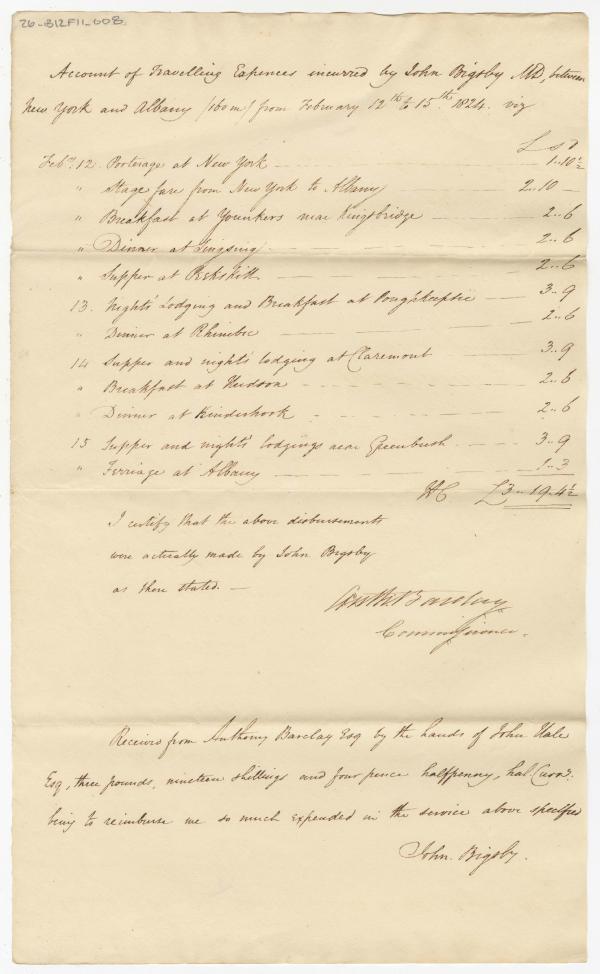 26-B12F11-008
Account of Travelling Expences incurred by John Bigsby MD, between
New York and Albany (160 m) from February 12th to 15th. 1824. viz
£ s d
Feby. 12. Porterage at New York 1..10½
" Stage fare from New York to Albany 2..10 —
" Breakfast at Younkers near Kingsbridge 2..6
" Dinner at Singsing 2..6
" Supper at Pekskill 2..6
13. Nights' Lodging and Breakfast at Poughkeepsie 3..9
" Dinner at Rhinebec 2..6
14 Supper and nights' lodging at Claremont 3..9
" Breakfast at Hudson 2..6
" Dinner at Kinderhook 2..6
15 Supper and nights' lodgings near Greenbush 3..9
" Ferriage at Albany 1..3
HC £3..19..4½
I certify that the above disbursements
were actually made by John Bigsby
as there stated. —
Anth. Barclay
Commissioner.
Received from Anthony Barclay Esq by the hands of John Hale
Esq, three pounds, nineteen shillings and four pence halfpenny, hal. Curry.
being to reimburse me so much expended in the service above specified
John. Bigsby.